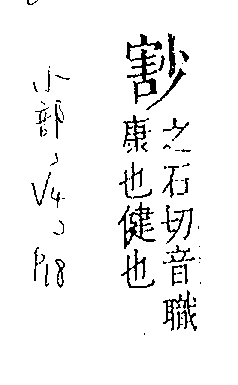 之石切音職
康也健也
小部、V4、P18